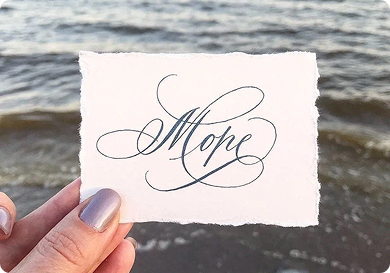 Море